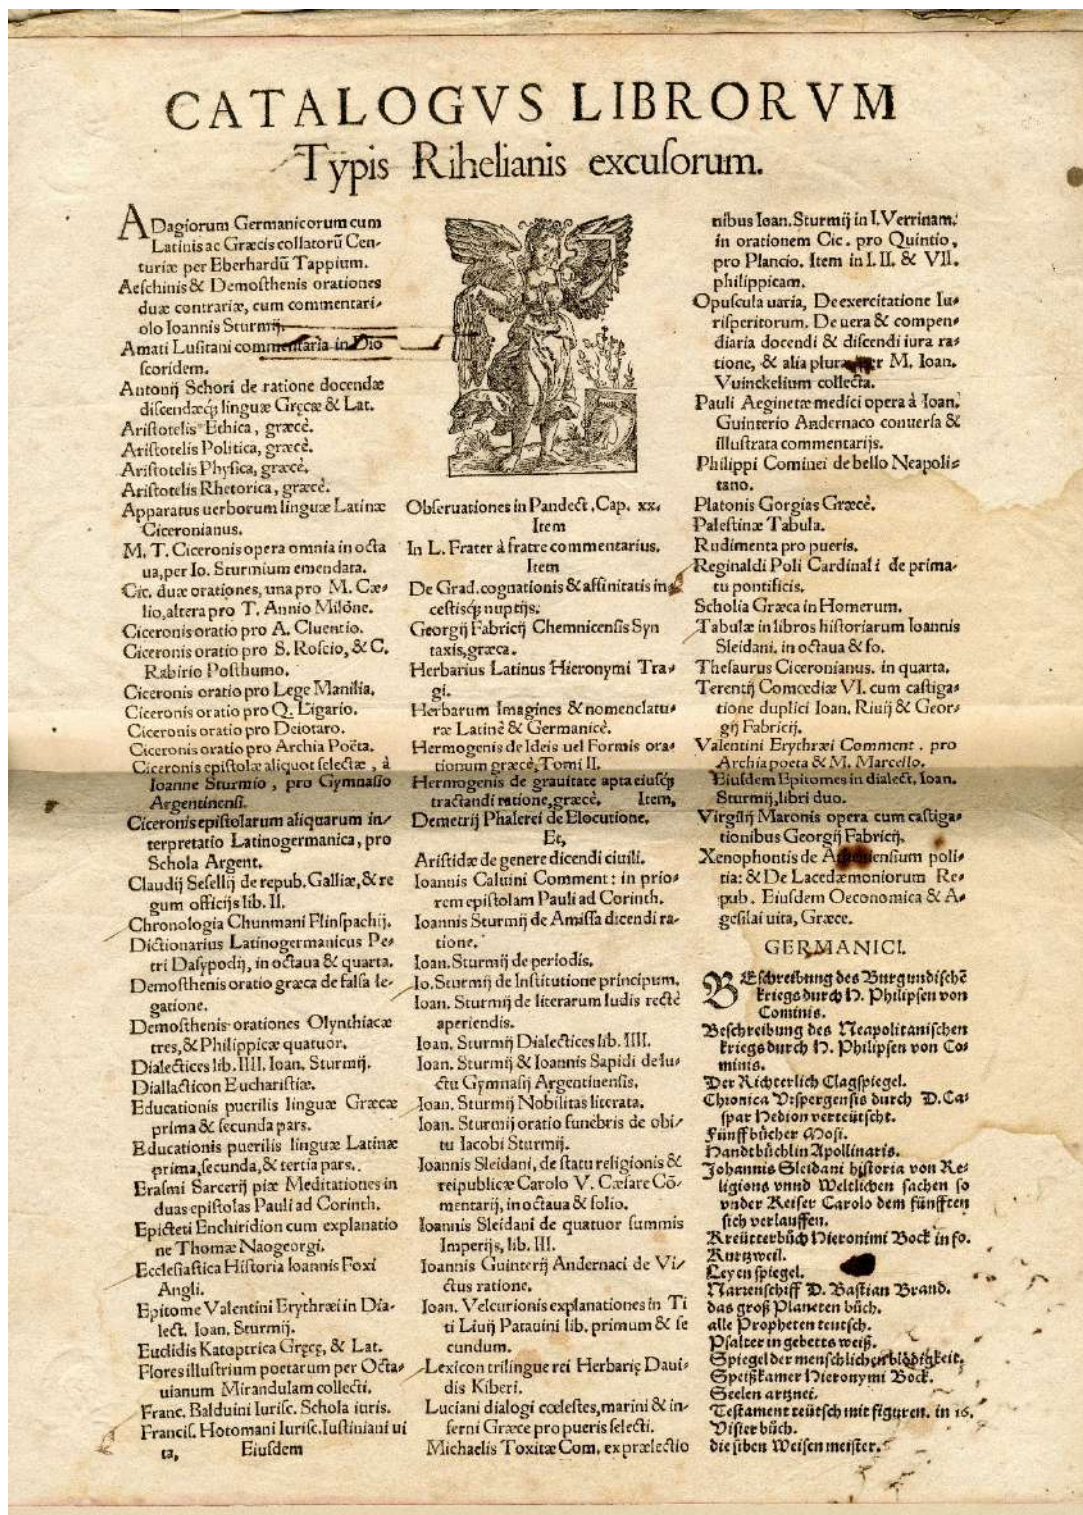 CATALOGVS LIBRORVM
Typis Rihelianis excuſorum.
ADagiorum Germanicorum cum
Latinis ac Græcis collatorũ Cen-
turiæ per Eberhardũ Tappium.
Aeſchinis & Demoſthenis orationes
duæ contrariæ, cum commentari-
olo Ioannis Sturmij.
Amati Luſitani commentaria in Dio
ſcoridem.
Antonij Schori de ratione docendæ
diſcendæq; linguæ Gręcæ & Lat.
Ariſtotelis Ethica, græcè.
Ariſtotelis Politica, græcè.
Ariſtotelis Phyſica, græcè.
Ariſtotelis Rhetorica, græcè.
Apparatus uerborum linguæ Latinæ
Ciceronianus.
M. T. Ciceronis opera omnia in octa
ua, per Io. Sturmium emendata.
Cic. duæ orationes, una pro M. Cæ-
lio, altera pro T. Annio Milone.
Ciceronis oratio pro A. Cluentio.
Ciceronis oratio pro S. Roſcio, & C.
Rabirio Poſthumo.
Ciceronis oratio pro Lege Manilia.
Ciceronis oratio pro Q. Ligario.
Ciceronis oratio pro Deiotaro.
Ciceronis oratio pro Archia Poëta.
Ciceronis epiſtolæ aliquot ſelectæ, à
Ioanne Sturmio, pro Gymnaſio
Argentinenſi.
Ciceronis epiſtolarum aliquarum in-
terpretatio Latinogermanica, pro
Schola Argent.
Claudij Seſellij de repub. Galliæ, & re
gum officijs lib. II.
Chronologia Chunmani Flinſpachij.
Dictionarius Latinogermanicus Pe-
tri Daſypodij, in octaua & quarta.
Demoſthenis oratio græca de falſa le-
gatione.
Demoſthenis orationes Olynthiacæ
tres, & Philippicæ quatuor.
Dialectices lib. IIII. Ioan. Sturmij.
Diallacticon Euchariſtiæ.
Educationis puerilis linguæ Græcæ
prima & ſecunda pars.
Educationis puerilis linguæ Latinæ
prima, ſecunda, & tertia pars.
Eraſmi Sarcerij piæ Meditationes in
duas epiſtolas Pauli ad Corinth.
Epicteti Enchiridion cum explanatio
ne Thomæ Naogeorgi.
Eccleſiaſtica Hiſtoria Ioannis Foxi
Angli.
Epitome Valentini Erythræi in Dia-
lect. Ioan. Sturmij.
Euclidis Katoptrica Gręcę, & Lat.
Flores illuſtrium poetarum per Octa-
uianum Mirandulam collecti.
Franc. Balduini Iuriſc. Schola iuris.
Franciſ. Hotomani Iuriſc. Iuſtiniani ui
ta, Eiuſdem
Obſeruationes in Pandect. Cap. xx.
Item
In L. Frater à fratre commentarius.
Item
De Grad. cognationis & affinitatis in-
ceſtisq; nuptijs.
Georgij Fabricij Chemnicenſis Syn
taxis, græca.
Herbarius Latinus Hieronymi Tra-
gi.
Herbarum Imagines & nomenclatu-
ræ Latinè & Germanicè.
Hermogenis de Ideis uel Formis ora-
tionum græcè, Tomi II.
Hermogenis de grauitate apta eiuſq;
tractandi ratione, græcè. Item,
Demetrij Phalerei de Elocutione.
Et,
Ariſtidæ de genere dicendi ciuili.
Ioannis Caluini Comment: in prio-
rem epiſtolam Pauli ad Corinth.
Ioannis Sturmij de Amiſſa dicendi ra-
tione.
Ioan. Sturmij de periodis.
Io. Sturmij de Inſtitutione principum.
Ioan. Sturmij de literarum ludis rectè
aperiendis.
Ioan. Sturmij Dialectices lib. IIII.
Ioan. Sturmij & Ioannis Sapidi de lu-
ctu Gymnaſij Argentinenſis.
Ioan. Sturmij Nobilitas literata.
Ioan. Sturmij oratio funebris de obi-
tu Iacobi Sturmij.
Ioannis Sleidani, de ſtatu religionis &
reipublicæ Carolo V. Cæſare Cõ-
mentarij, in octaua & folio.
Ioannis Sleidani de quatuor ſummis
Imperijs, lib. III.
Ioannis Guinterij Andernaci de Vi-
ctus ratione.
Ioan. Velcurionis explanationes in Ti
ti Liuij Patauini lib. primum & ſe
cundum.
Lexicon trilingue rei Herbarię Daui-
dis Kiberi.
Luciani dialogi cœleſtes, marini & in-
ferni Græce pro pueris ſelecti.
Michaelis Toxitæ Com. ex prælectio
nibus Ioan. Sturmij in I. Verrinam.
in orationem Cic. pro Quintio,
pro Plancio. Item in I. II. & VII.
philippicam.
Opuſcula uaria, De exercitatione Iu-
riſperitorum. De uera & compen-
diaria docendi & diſcendi iura ra-
tione, & alia plura per M. Ioan.
Vuinckelium collecta.
Pauli Aeginetæ medici opera à Ioan.
Guinterio Andernaco conuerſa &
illuſtrata commentarijs.
Philippi Cominei de bello Neapoli-
tano.
Platonis Gorgias Græcè.
Paleſtinæ Tabula.
Rudimenta pro pueris.
Reginaldi Poli Cardinali de prima-
tu pontificis.
Scholia Græca in Homerum.
Tabulæ in libros hiſtoriarum Ioannis
Sleidani. in octaua & fo.
Theſaurus Ciceronianus. in quarta.
Terentij Comœdiæ VI. cum caſtiga-
tione duplici Ioan. Riuij & Geor-
gij Fabricij.
Valentini Erythræi Comment. pro
Archia poeta & M. Marcello.
Eiuſdem Epitomes in dialect. Ioan.
Sturmij, libri duo.
Virgilij Maronis opera cum caſtiga-
tionibus Georgij Fabricij.
Xenophontis de Athenienſium poli-
tia: & De Lacedæmoniorum Re-
pub. Eiuſdem Oeconomica & A-
geſilai uita, Græce.
GERMANICI.
BEſchreibung des Burgundiſchẽ
kriegs durch H. Philipſen von
Cominis.
Beſchreibung des Neapolitaniſchen
kriegs durch H. Philipſen von Co-
minis.
Der Richterlich Clagſpiegel.
Chronica Vrſpergenſis durch D. Ca-
ſpar Hedion verteütſcht.
Fünff bücher Moſi.
Handtbüchlin Apollinaris.
Johannis Sleidani hiſtoria von Re-
ligions vnnd Weltlichen ſachen ſo
vnder Keiſer Carolo dem fünfften
ſich verlauffen.
Kreütterbůch Hieronimi Bock in fo.
Kurtzweil.
Leyen ſpiegel.
Narrenſchiff D. Baſtian Brand.
das groß Planeten bůch.
alle Propheten teutſch.
Pſalter in gebetts weiß.
Spiegel der menſchlichen blödigkeit.
Speißkamer Hieronymi Bock.
Seelen artznei.
Teſtament teütſch mit figuren. in 16.
Viſier bůch.
die ſiben Weiſen meiſter.